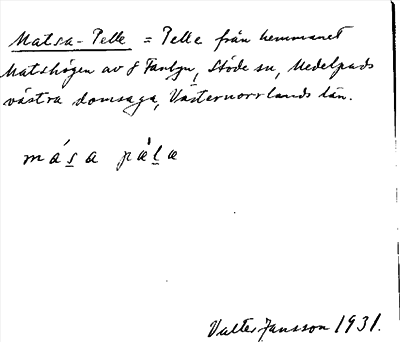 Matsa-Pelle = Pelle från hemmanet
Matshögen av 8 Fanbyn, Stöde sn, Medelpads
västra domsaga, Västernorrlands län.
má<u>s</u>a pä̀<u>l</u>a
Valter Jansson 1931.